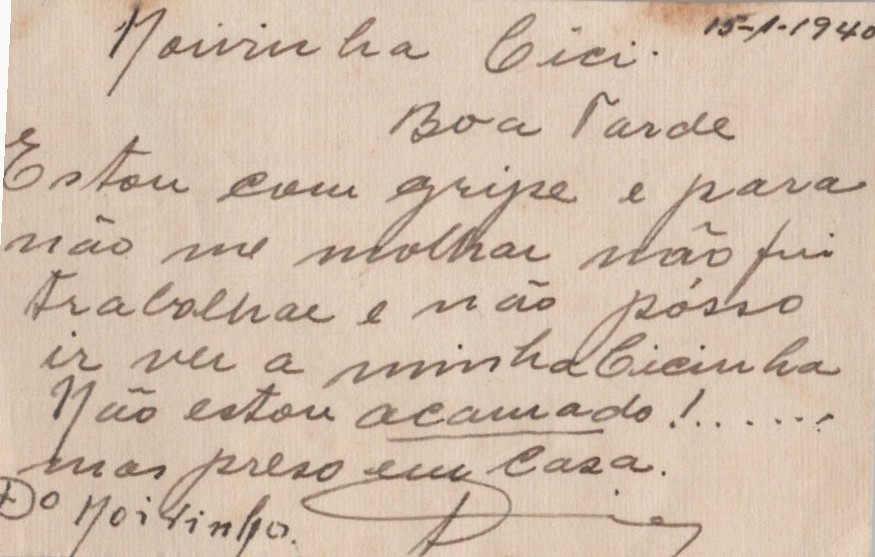 15-1-1940
Noivinha Cici.
Boa Tarde
Estou com gripe e para
não me molhar não fui
trabalhar e não pósso
ir ver a minha Cicinha
Não estou acamado!......
mas preso em casa.
Do Noivinho.